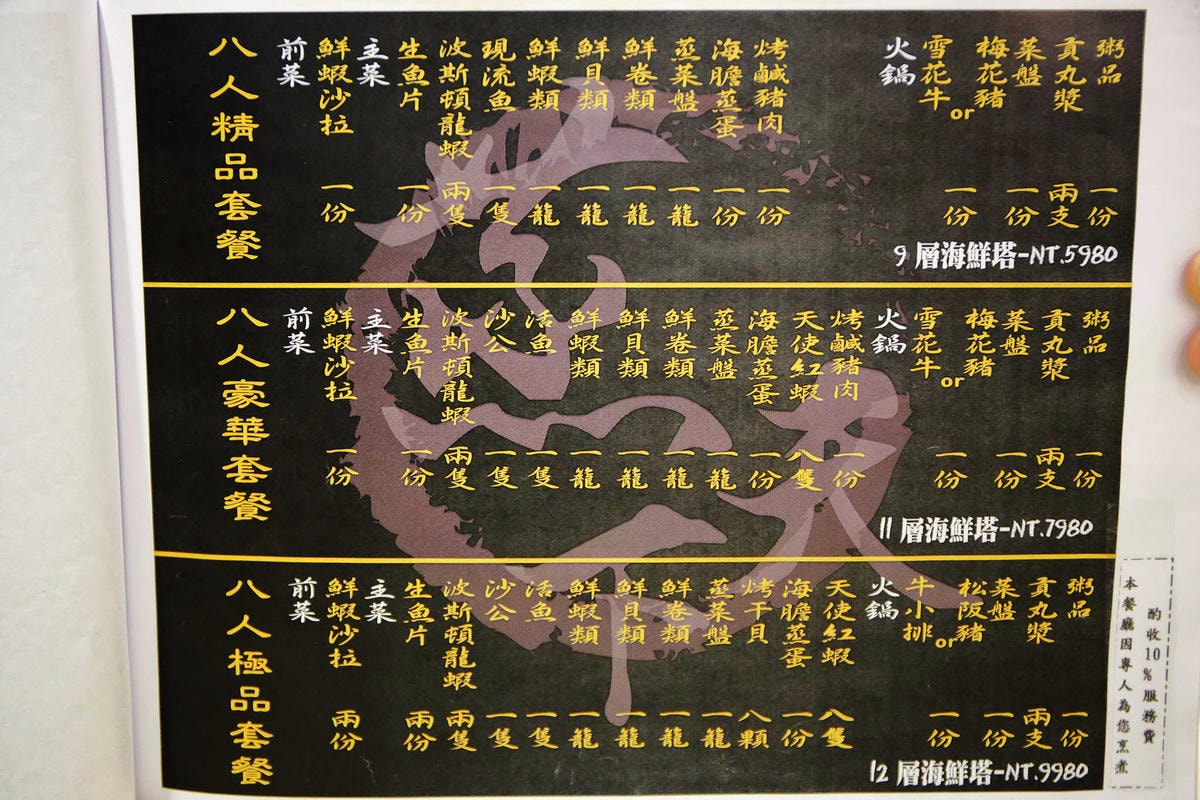 八人精品套餐
前菜
鮮蝦沙拉 一份
主菜
生魚片 一份
波斯頓龍蝦 兩隻
現流魚 一隻
鮮蝦類 一籠
鮮貝類 一籠
鮮卷類 一籠
蒸菜盤 一籠
海膽蒸蛋 一份
烤鹹豬肉 一份
火鍋
雪花牛or梅花豬 一份
菜盤 一份
貢丸漿 兩支
粥品 一份
9層海鮮塔-NT.5980
八人豪華套餐
前菜
鮮蝦沙拉 一份
主菜
生魚片 一份
波斯頓龍蝦 兩隻
沙公 一隻
活魚 一隻
鮮蝦類 一籠
鮮貝類 一籠
鮮卷類 一籠
蒸菜盤 一籠
海膽蒸蛋 一份
天使紅蝦 八隻
烤鹹豬肉 一份
火鍋
雪花牛or梅花豬 一份
菜盤 一份
貢丸漿 兩支
粥品 一份
11層海鮮塔-NT.7980
八人極品套餐
前菜
鮮蝦沙拉 兩份
主菜
生魚片 兩份
波斯頓龍蝦 兩隻
沙公 一隻
活魚 一隻
鮮蝦類 一籠
鮮貝類 一籠
鮮卷類 一籠
蒸菜盤 一籠
烤干貝 八顆
海膽蒸蛋 一份
天使紅蝦 八隻
火鍋
牛小排or松阪豬 一份
菜盤 一份
貢丸漿 兩支
粥品 一份
12層海鮮塔-NT.9980
本餐廳因專人為您烹煮
酌收10%服務費